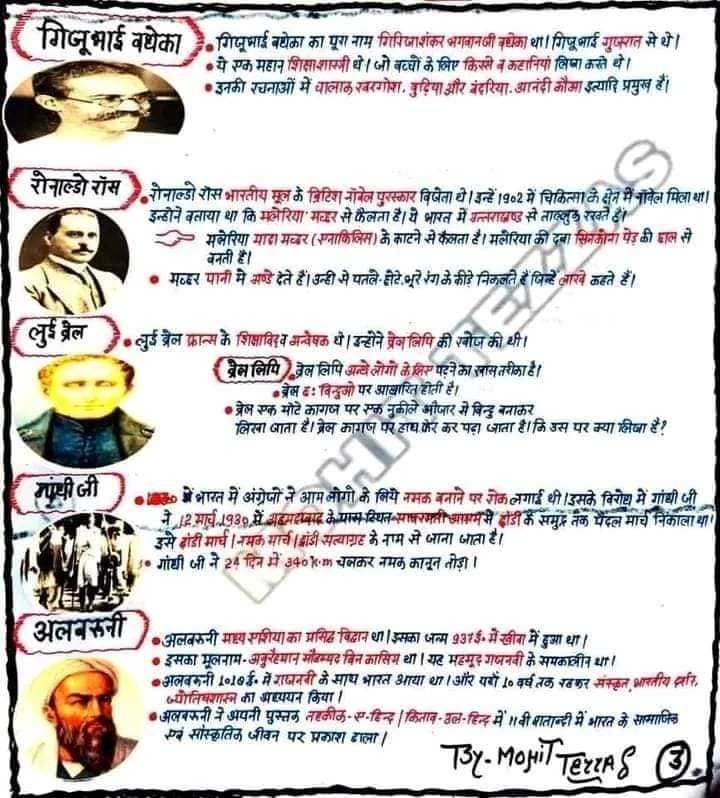 गिजूभाई बधेका
• गिजूभाई बधेका का पूरा नाम गिरिजाशंकर भगवानजी बधेका था। गिजूभाई गुजरात से थे।
• ये एक महान शिक्षाशास्त्री थे। जो बच्चों के लिए किस्से व कहानियां लिखा करते थे।
• इनकी रचनाओं में चालाक खरगोश, बुढ़िया और बंदरिया, आनंदी कौआ इत्यादि प्रमुख हैं।
रोनाल्डो रॉस
• रोनाल्डो रॉस भारतीय मूल के ब्रिटिश नॉबेल पुरस्कार विजेता थे। इन्हें 1902 में चिकित्सा के क्षेत्र में नॉबेल मिला था।
इन्होने बताया था कि मलेरिया मच्छर से फैलता है। ये भारत में उत्तराखण्ड से ताल्लुक रखते हैं।
मलेरिया मादा मच्छर (एनाफिलिस) के काटने से फैलता है। मलेरिया की दवा सिनकोना पेड़ की छाल से
बनती है।
• मच्छर पानी मे अण्डे देते हैं। उन्ही से पतले-छोटे, भूरे रंग के कीड़े निकलते हैं जिन्हें लारवे कहते हैं।
लुई ब्रेल
• लुई ब्रेल फ्रान्स के शिक्षाविद व अन्वेषक थे। इन्होंने ब्रेल लिपि की खोज की थी।
ब्रेल लिपि
• ब्रेल लिपि अन्धे लोगो के लिए पढ़ने का खास तरीका है।
• ब्रेल छः बिन्दुओ पर आधारित होती है।
• ब्रेल एक मोटे कागज पर एक नुकीले औजार से बिन्दु बनाकर
लिखा जाता है। ब्रेल कागज पर हाथ फेर कर पढ़ा जाता है। कि उस पर क्या लिखा है?
गांधी जी
• 1930 में भारत में अंग्रेजो ने आम लोगो के लिये नमक बनाने पर रोक लगाई थी। इसके विरोध में गांधी जी
ने 12 मार्च 1930 में अहमदाबाद के पास स्थित साबरमती आश्रम से दांडी के समुद्र तक पैदल मार्च निकाला था।
इसे दांडी मार्च। नमक मार्च। दांडी सत्याग्रह के नाम से जाना जाता है।
• गांधी जी ने 24 दिन में 340 k.m चलकर नमक कानून तोड़ा।
अलबरूनी
• अलबरूनी मध्य एशिया का प्रसिद्ध विद्वान था। इसका जन्म 973ई. में खीवा में हुआ था।
• इसका मूलनाम-अबुरैहमान मौहम्मद बिन कासिम था। यह महमूद गजनवी के समकालीन था।
• अलबरूनी 1010 ई. में गजनवी के साथ भारत आया था। और यहाँ 10 वर्ष तक रहकर संस्कृत, भारतीय दर्शन,
ज्योतिषशास्त्र का अध्ययन किया।
• अलबरूनी ने अपनी पुस्तक तहकीक-ए-हिन्द | किताब-उल-हिन्द में 11 वी शताब्दी में भारत के सामाजिक
एवं सांस्कृतिक जीवन पर प्रकाश डाला।
By- Mohit Tezzas ③